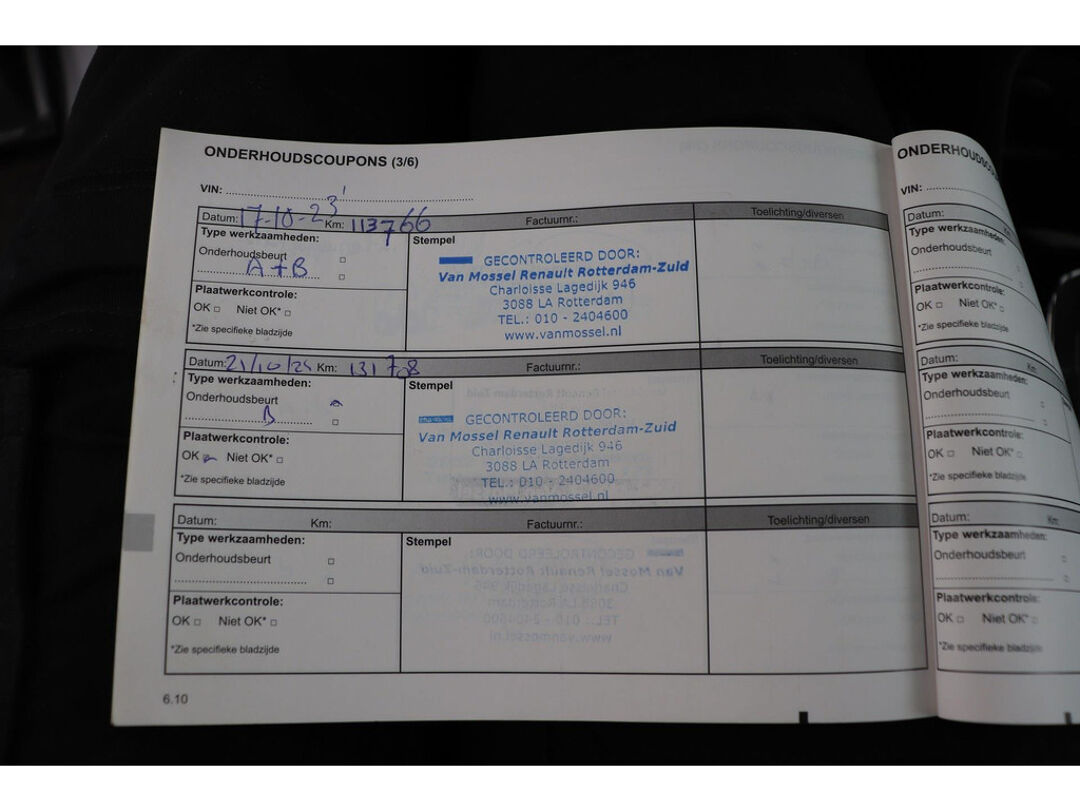 ONDERHOUDSCOUPONS (3/6)
VIN:
Datum: 17-10-23 Km: 113766 Factuurnr.: Toelichting/diversen
Type werkzaamheden:
Onderhoudsbeurt
A+B
Plaatwerkcontrole:
OK Niet OK*
*Zie specifieke bladzijde
Stempel
GECONTROLEERD DOOR:
Van Mossel Renault Rotterdam-Zuid
Charloisse Lagedijk 946
3088 LA Rotterdam
TEL.: 010 - 2404600
www.vanmossel.nl
Datum: 21/10/24 Km: 131708 Factuurnr.: Toelichting/diversen
Type werkzaamheden:
Onderhoudsbeurt
B
Plaatwerkcontrole:
OK Niet OK*
*Zie specifieke bladzijde
Stempel
GECONTROLEERD DOOR:
Van Mossel Renault Rotterdam-Zuid
Charloisse Lagedijk 946
3088 LA Rotterdam
TEL.: 010 - 2404600
www.vanmossel.nl
Datum: Km: Factuurnr.: Toelichting/diversen
Type werkzaamheden:
Onderhoudsbeurt
Plaatwerkcontrole:
OK Niet OK*
*Zie specifieke bladzijde
Stempel
6.10
VIN:
Datum:
Type werkzaamheden:
Onderhoudsbeurt
Plaatwerkcontrole:
OK Niet OK*
*Zie specifieke bladzijde
Datum: Km:
Type werkzaamheden:
Onderhoudsbeurt
Plaatwerkcontrole:
OK Niet OK*
*Zie specifieke bladzijde
Datum: Km:
Type werkzaamheden:
Onderhoudsbeurt
Plaatwerkcontrole:
OK Niet OK*
*Zie specifieke bladzijde